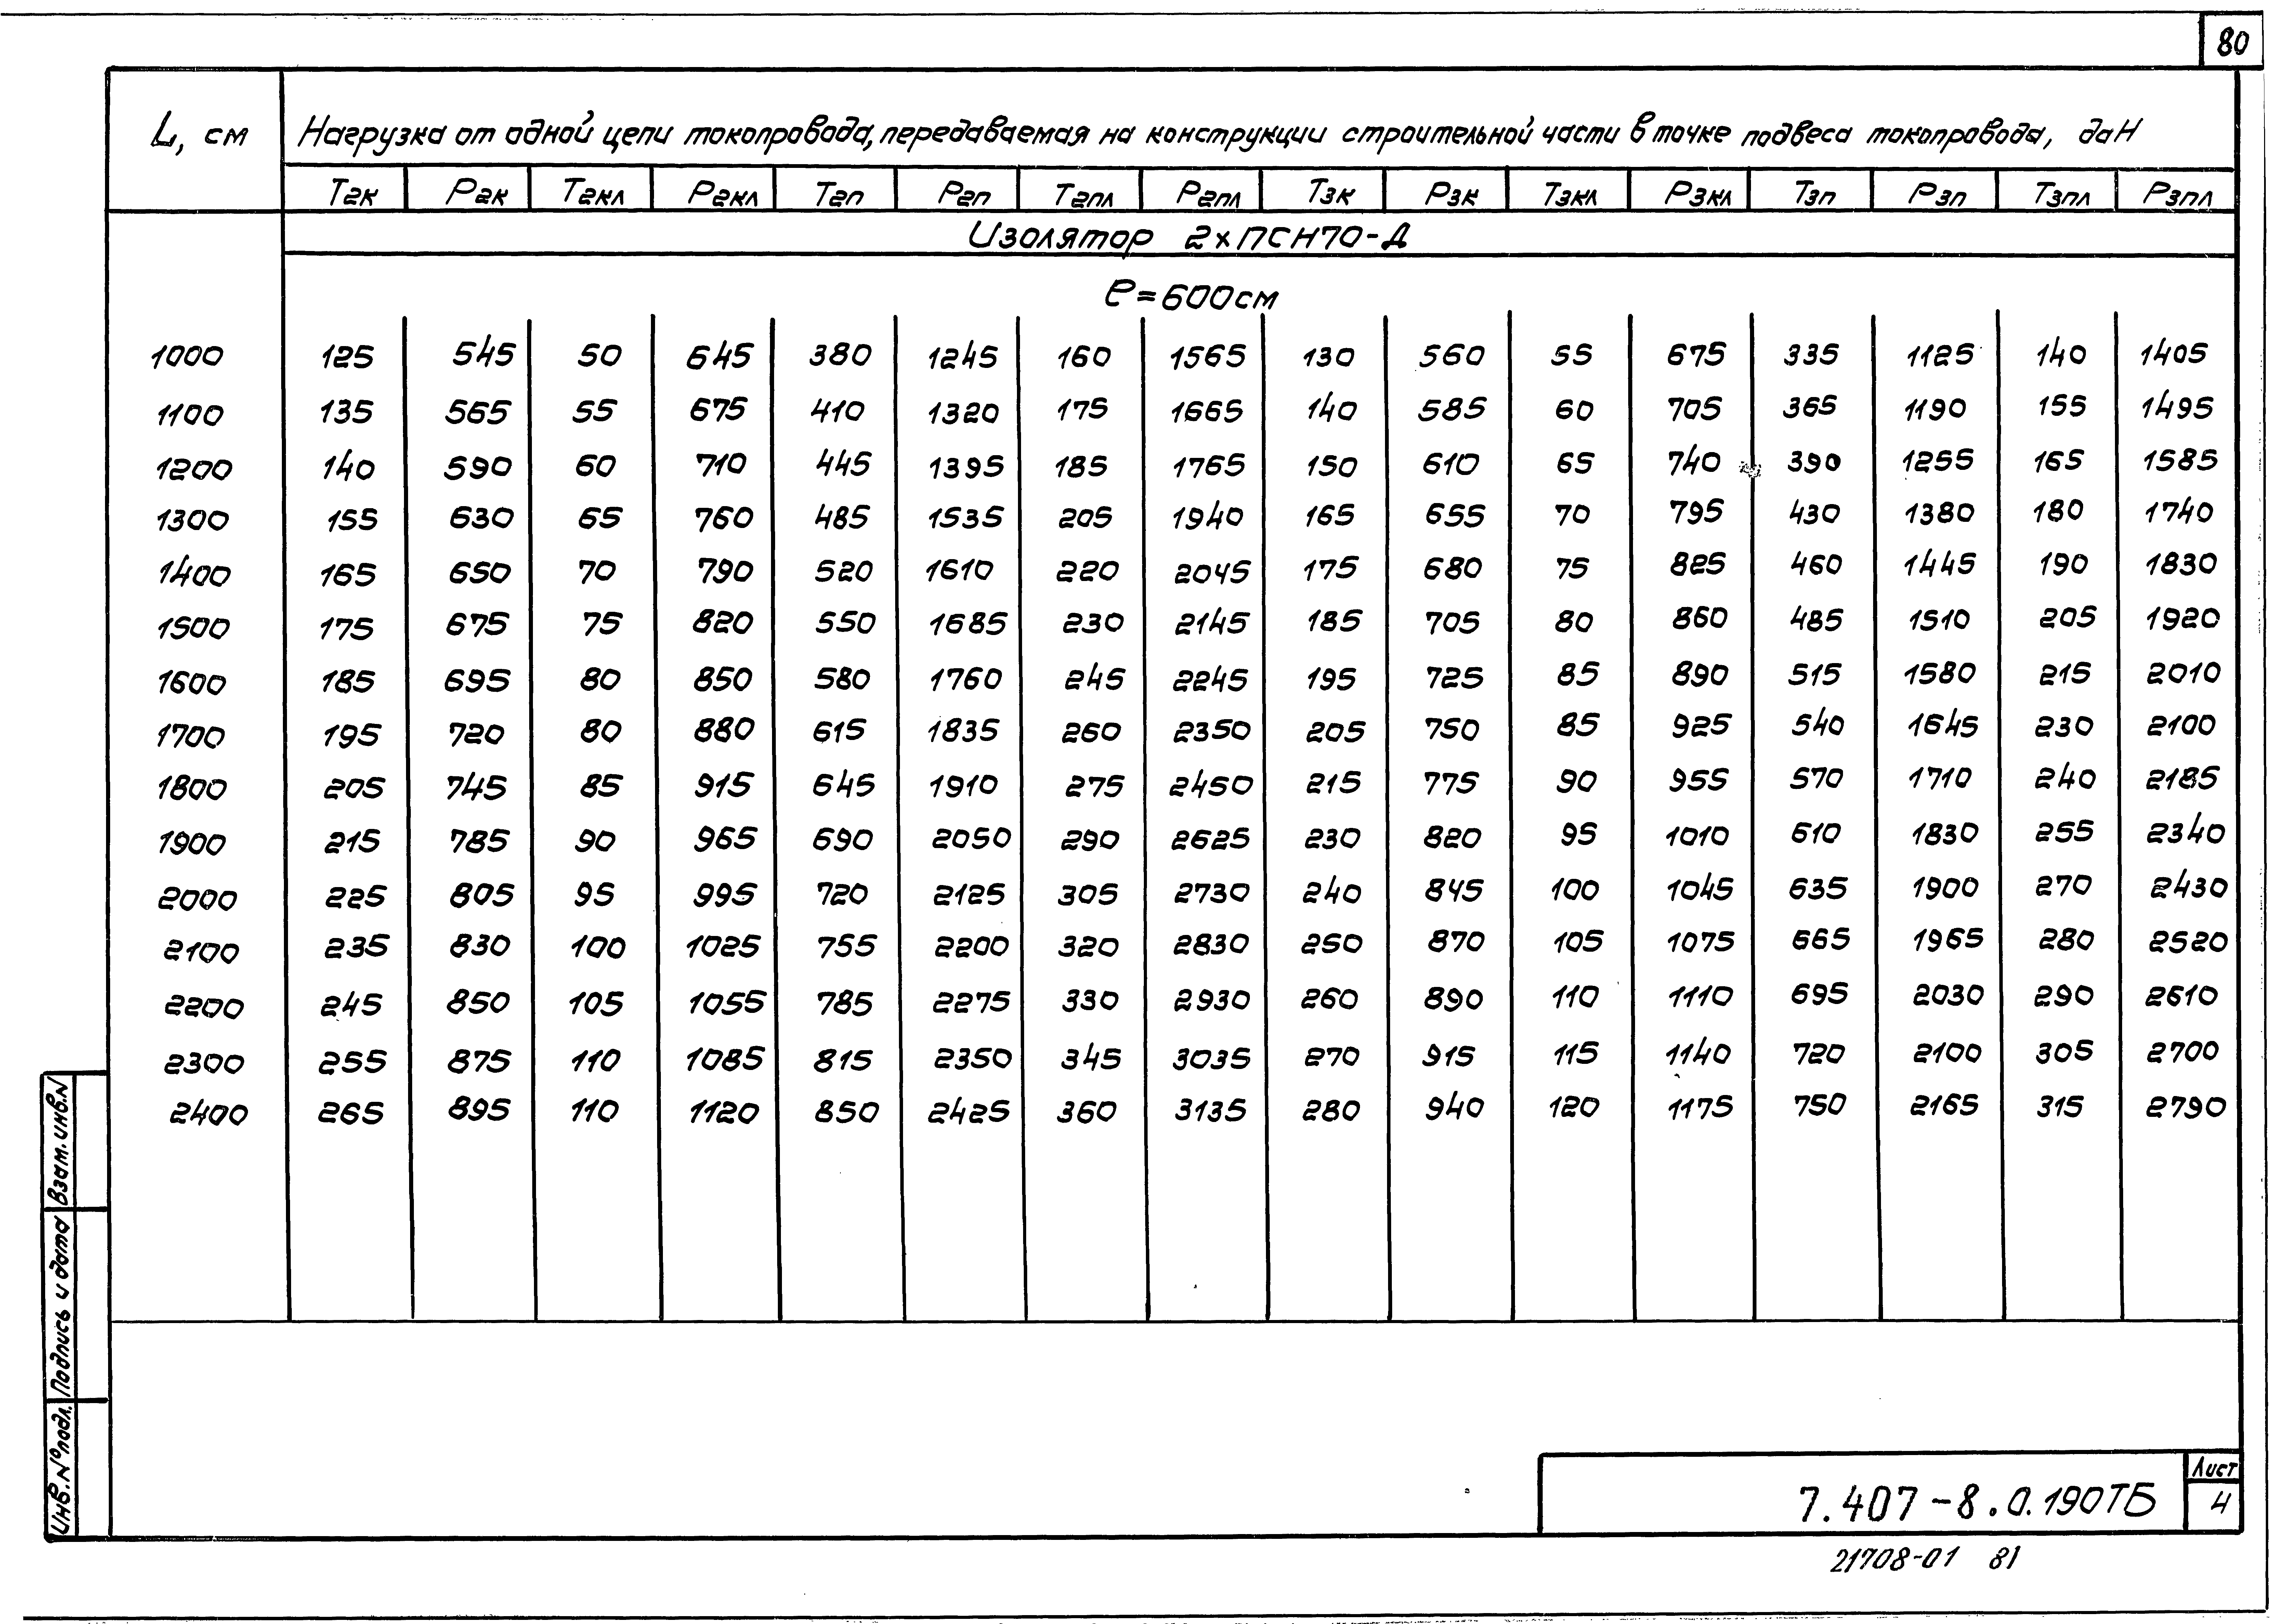 80
L, см Нагрузка от одной цепи токопровода, передаваемая на конструкции строительной части в точке подвеса токопровода, даН
Тгк Ргк Тгкл Ргкл Тгп Ргп Тгпл Ргпл Тзк Рзк Тзкл Рзкл Тзп Рзп Тзпл Рзпл
Изолятор 2хПСН70-Д
ℓ=600см
1000 125 545 50 645 380 1245 160 1565 130 560 55 675 335 1125 140 1405
1100 135 565 55 675 410 1320 175 1665 140 585 60 705 365 1190 155 1495
1200 140 590 60 710 445 1395 185 1765 150 610 65 740 390 1255 165 1585
1300 155 630 65 760 485 1535 205 1940 165 655 70 795 430 1380 180 1740
1400 165 650 70 790 520 1610 220 2045 175 680 75 825 460 1445 190 1830
1500 175 675 75 820 550 1685 230 2145 185 705 80 860 485 1510 205 1920
1600 185 695 80 850 580 1760 245 2245 195 725 85 890 515 1580 215 2010
1700 195 720 80 880 615 1835 260 2350 205 750 85 925 540 1645 230 2100
1800 205 745 85 915 645 1910 275 2450 215 775 90 955 570 1710 240 2185
1900 215 785 90 965 690 2050 290 2625 230 820 95 1010 610 1830 255 2340
2000 225 805 95 995 720 2125 305 2730 240 845 100 1045 635 1900 270 2430
2100 235 830 100 1025 755 2200 320 2830 250 870 105 1075 665 1965 280 2520
2200 245 850 105 1055 785 2275 330 2930 260 890 110 1110 695 2030 290 2610
2300 255 875 110 1085 815 2350 345 3035 270 915 115 1140 720 2100 305 2700
2400 265 895 110 1120 850 2425 360 3135 280 940 120 1175 750 2165 315 2790
Инв.№подл. Подпись и дата Взам.инв.N
7.407-8.0.190ТБ
Лист
4
21708-01 81